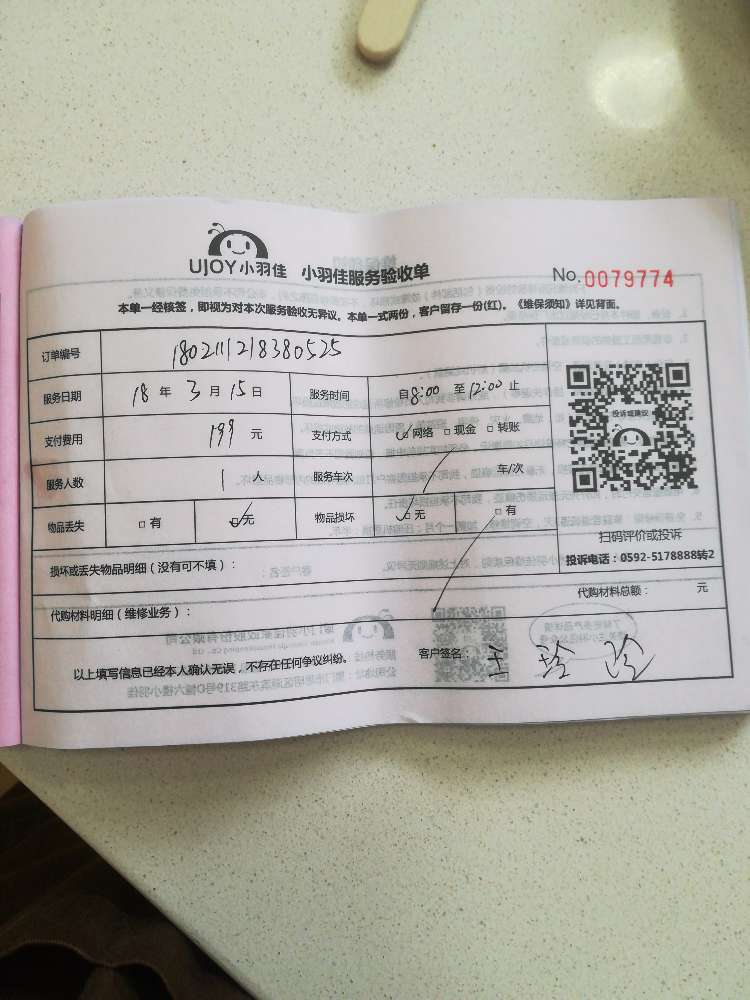 UJOY小羽佳 小羽佳服务验收单 No.0079774
本单一经核签，即视为对本次服务验收无异议。本单一式两份，客户留存一份(红)。《维保须知》详见背面。
订单编号 1802111218380525
服务日期 18 年 3 月 15 日 服务时间 自8:00 至12:00 止
支付费用 199 元 支付方式 ☑网络 □ 现金 □ 转账
投诉或建议
服务人数 1 人 服务车次 车/次
物品丢失 □ 有 ☑无 物品损坏 ☑无 □ 有
扫码评价或投诉
损坏或丢失物品明细（没有可不填）：
投诉电话：0592-5178888转2
代购材料明细（维修业务）： 代购材料总额： 元
以上填写信息已经本人确认无误，不存在任何争议纠纷。 客户签名： 王 玲 玲